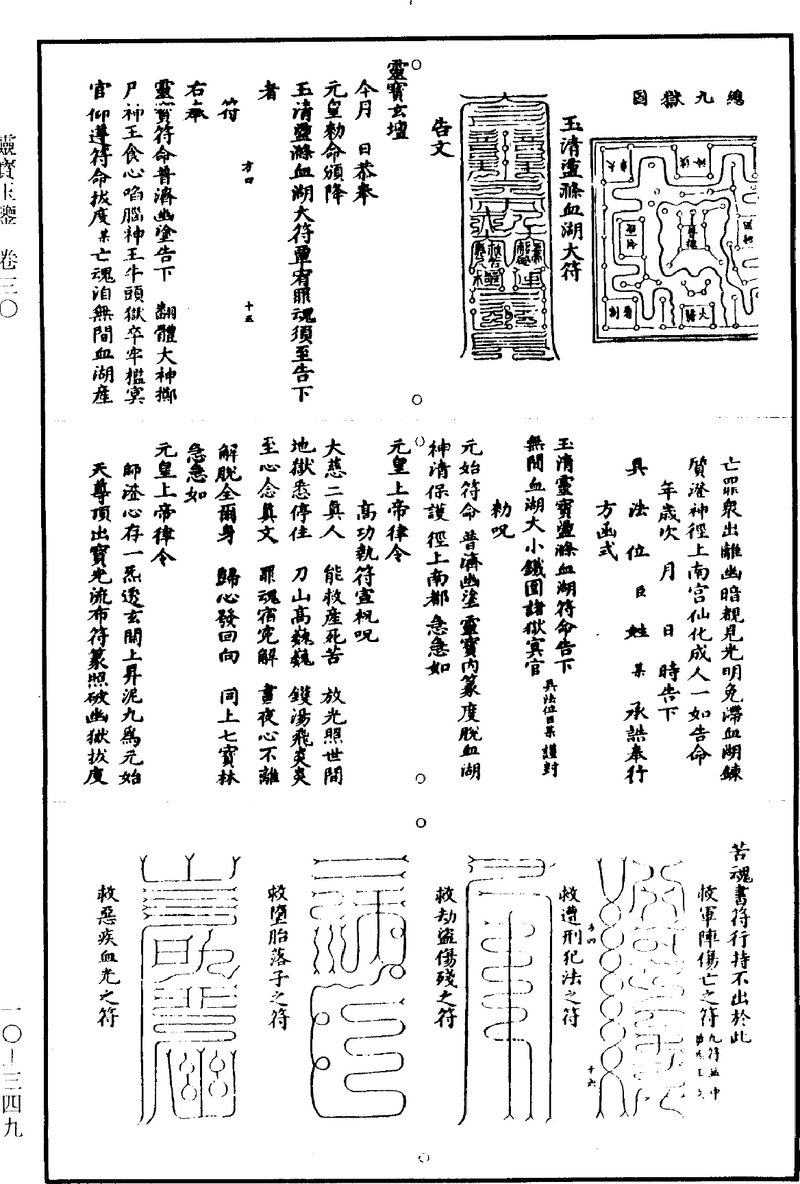 總九獄圖
玉清盪滌血湖大符
告文
靈寶玄壇
今月　日恭奉
元皇勑命頒降
玉清盪滌血湖大符覃宥罪魂須至告下
者
符
右奉
靈寶符命普濟幽塗告下　翻體大神擲
尸神王食心啗腦神王牛頭獄卒牢檻冥
官仰遵符命拔度某亡魂洎無間血湖産
方四
十五
亡罪衆出離幽暗覩見光明免滯血湖鍊
質澄神徑上南宮仙化成人一如告命
年歲次　月　日　時告下
具　法　位　臣　姓　某　承誥奉行
方函式
玉清靈寶盪滌血湖符命告下
無間血湖大小鐵圍諸獄冥官　具法位臣某謹封
勑呪
元始符命　普濟幽塗　靈寶内篆　度脱血湖
神清保護　徑上南都　急急如
元皇上帝律令
高功執符靈祝呪
大慈二真人　能救産死苦　放光照世間
地獄悉停住　刀山高巍巍　鑊湯飛炎炎
至心念真文　罪魂宿寃解　晝夜心不離
解脱全爾身　歸心發回向　同上七寶林
急急如
元皇上帝律令
師澄心存一炁透玄關上昇泥九爲元始
天尊頂出寶光流布符篆照破幽獄拔度
苦魂書符行持不出於此
救軍陣傷亡之符
方四
十六
救遭刑犯法之符
救劫盜傷殘之符
救墮胎落子之符
救惡疾血光之符
靈寶玉鑒　卷三〇
一〇—三四九